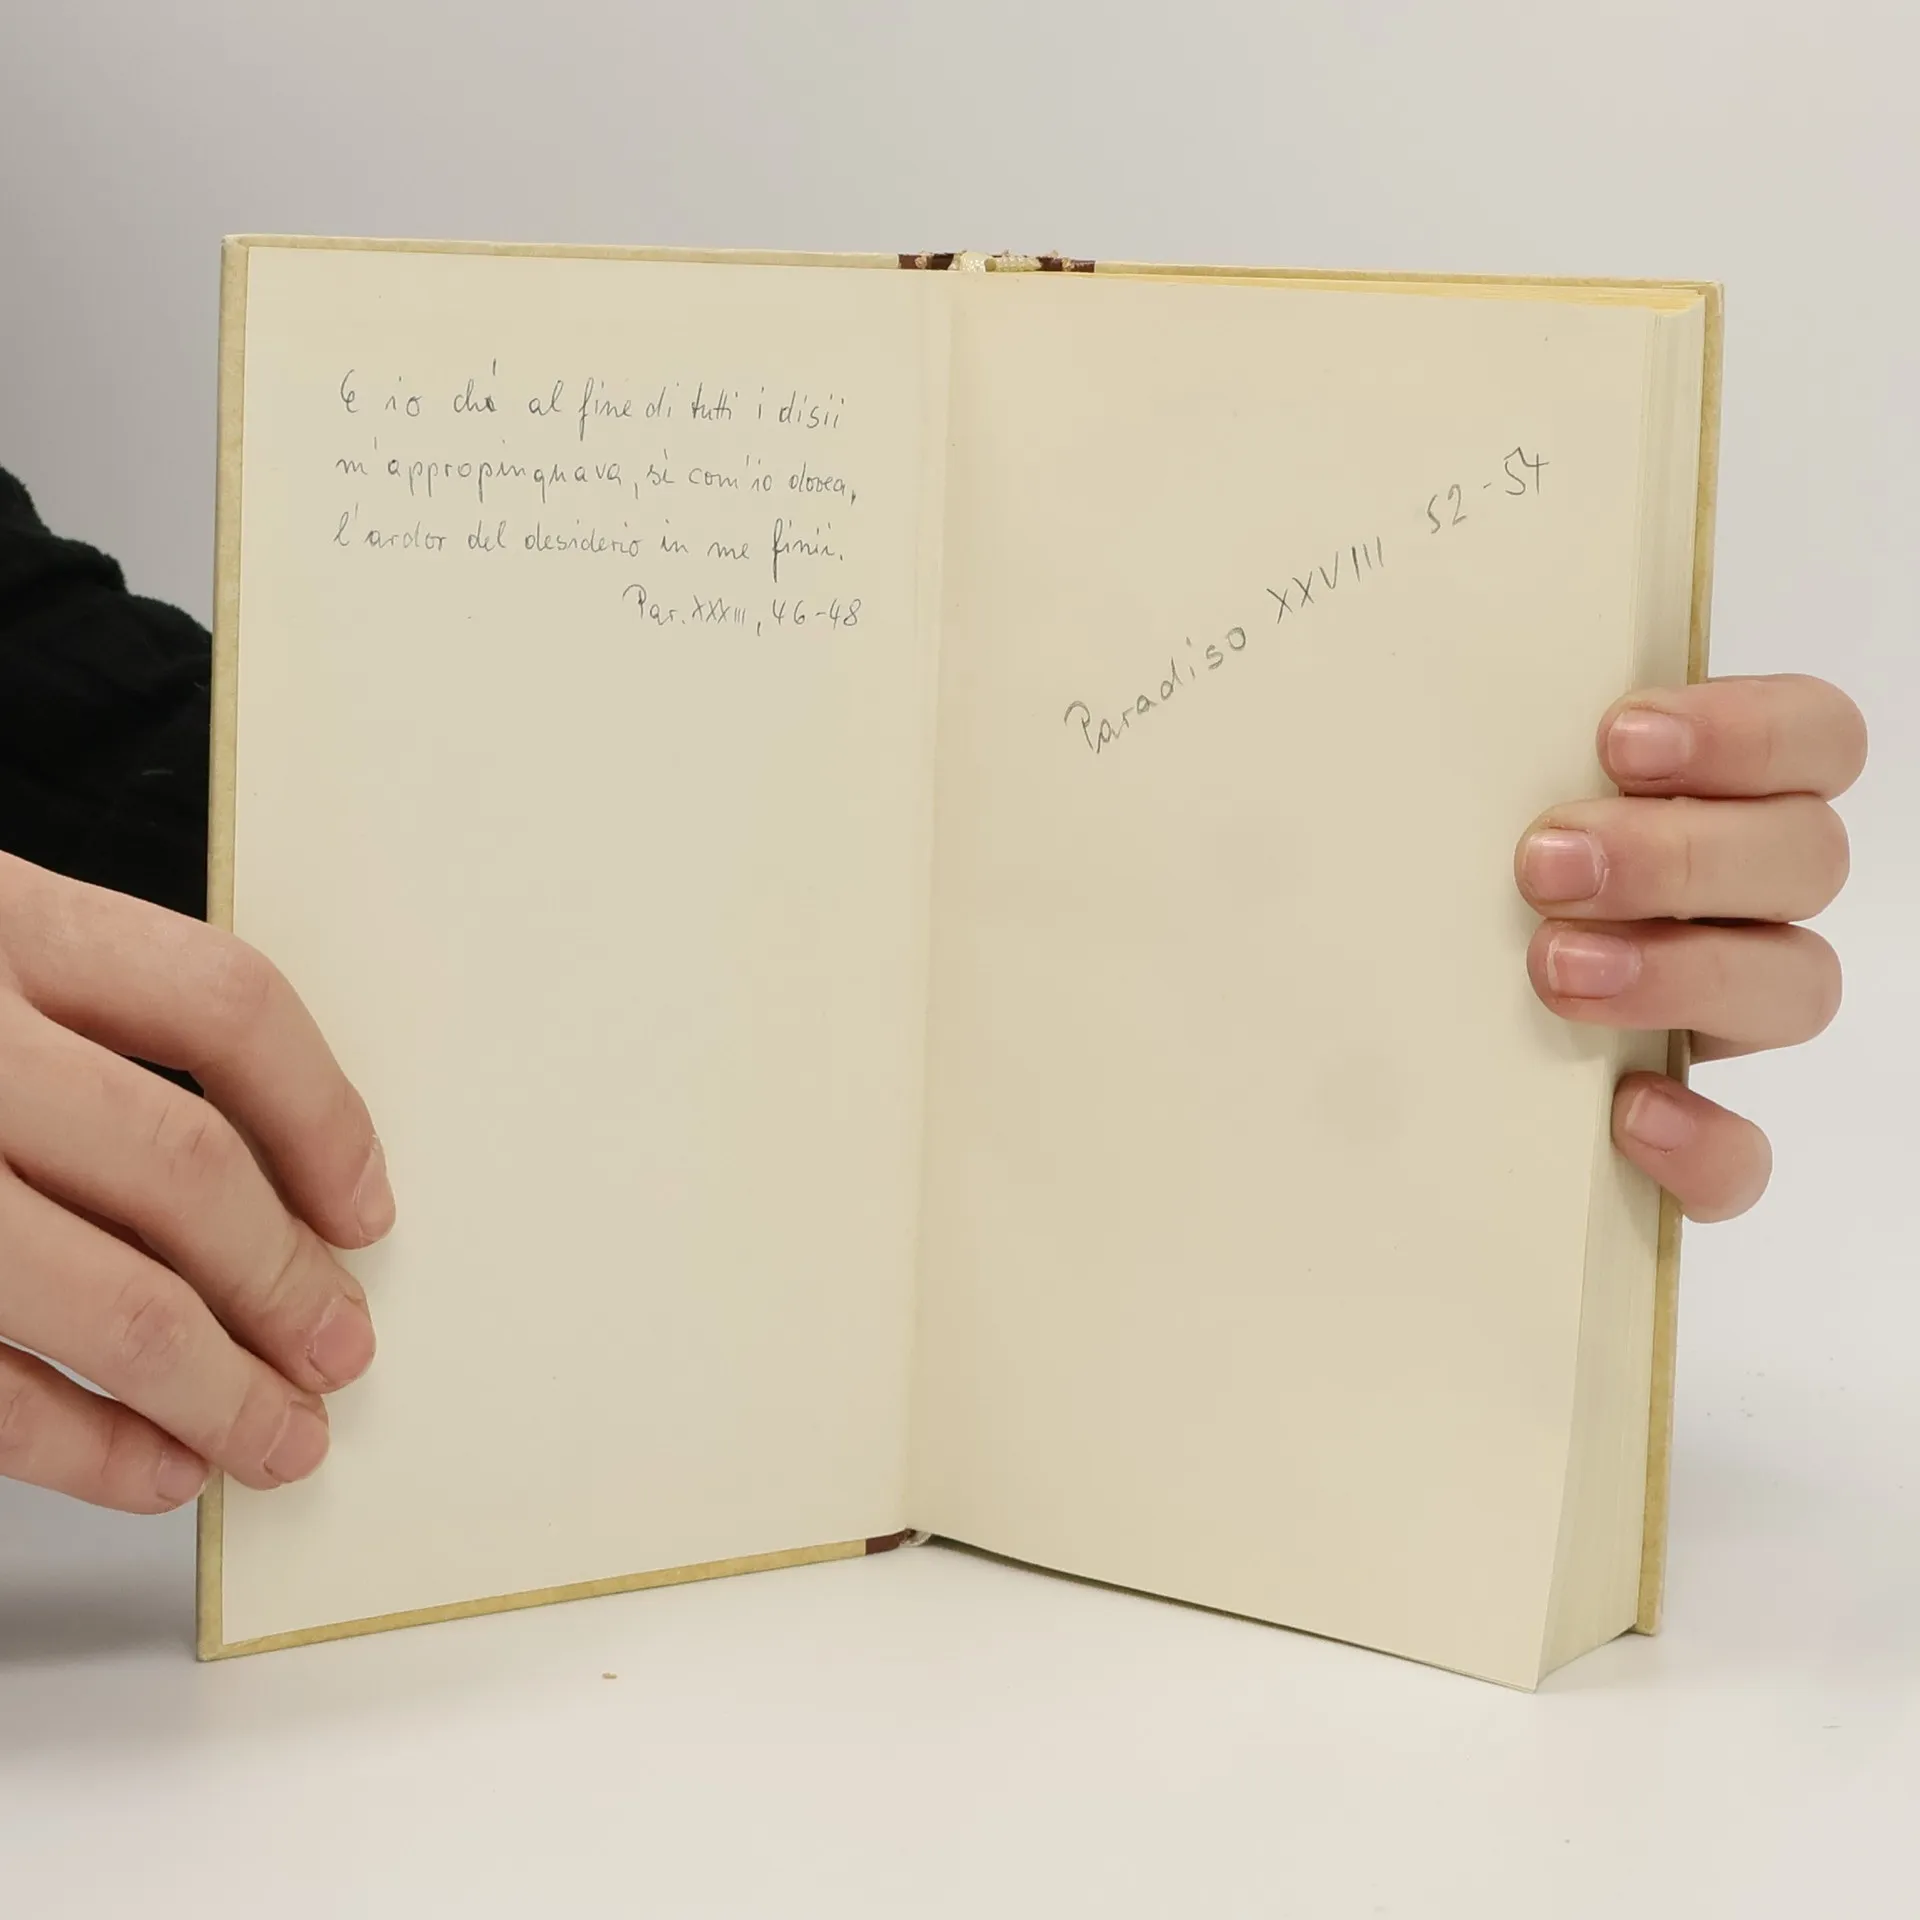 E io ch'  al fine di tutti i disii
m'appropinquava, sì com'io dovea,
l'ardor del desiderio in me finii.
Par. XXXIII, 46-48
Paradiso XXVIII 52-54